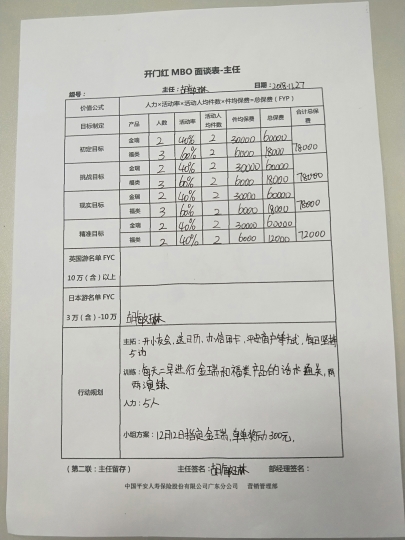 开门红 MBO 面谈表-主任
题号： 主任：胡敏琳 日期：2018.11.27
价值公式 人力×活动率×活动人均件数×件均保费=总保费（FYP）
目标制定 产品 人数 活动率 活动人均件数 件均保费 总保费 合计总保费
初定目标 金瑞 2 40% 2 30000 60000 78000
福类 3 60% 2 6000 18000
挑战目标 金瑞 2 40% 2 30000 60000 78000
福类 3 60% 2 6000 18000
现实目标 金瑞 2 40% 2 30000 60000 78000
福类 3 60% 2 6000 18000
精准目标 金瑞 2 40% 2 30000 60000 72000
福类 2 40% 2 6000 12000
英国游名单 FYC
10 万（含）以上
日本游名单 FYC
3 万（含）-10 万 胡敏琳
行动规划
主拓：开小交会，送日历，办信用卡，平安商户等方式，每日坚持
5访
训练：每天二早进行金瑞和福类产品的话术通关，两
两演练
人力：5人
小组方案：12月12日指定金瑞，单单奖励300元。
（第二联：主任留存） 主任签名：胡敏琳 部经理签名：
中国平安人寿保险股份有限公司广东分公司 营销管理部